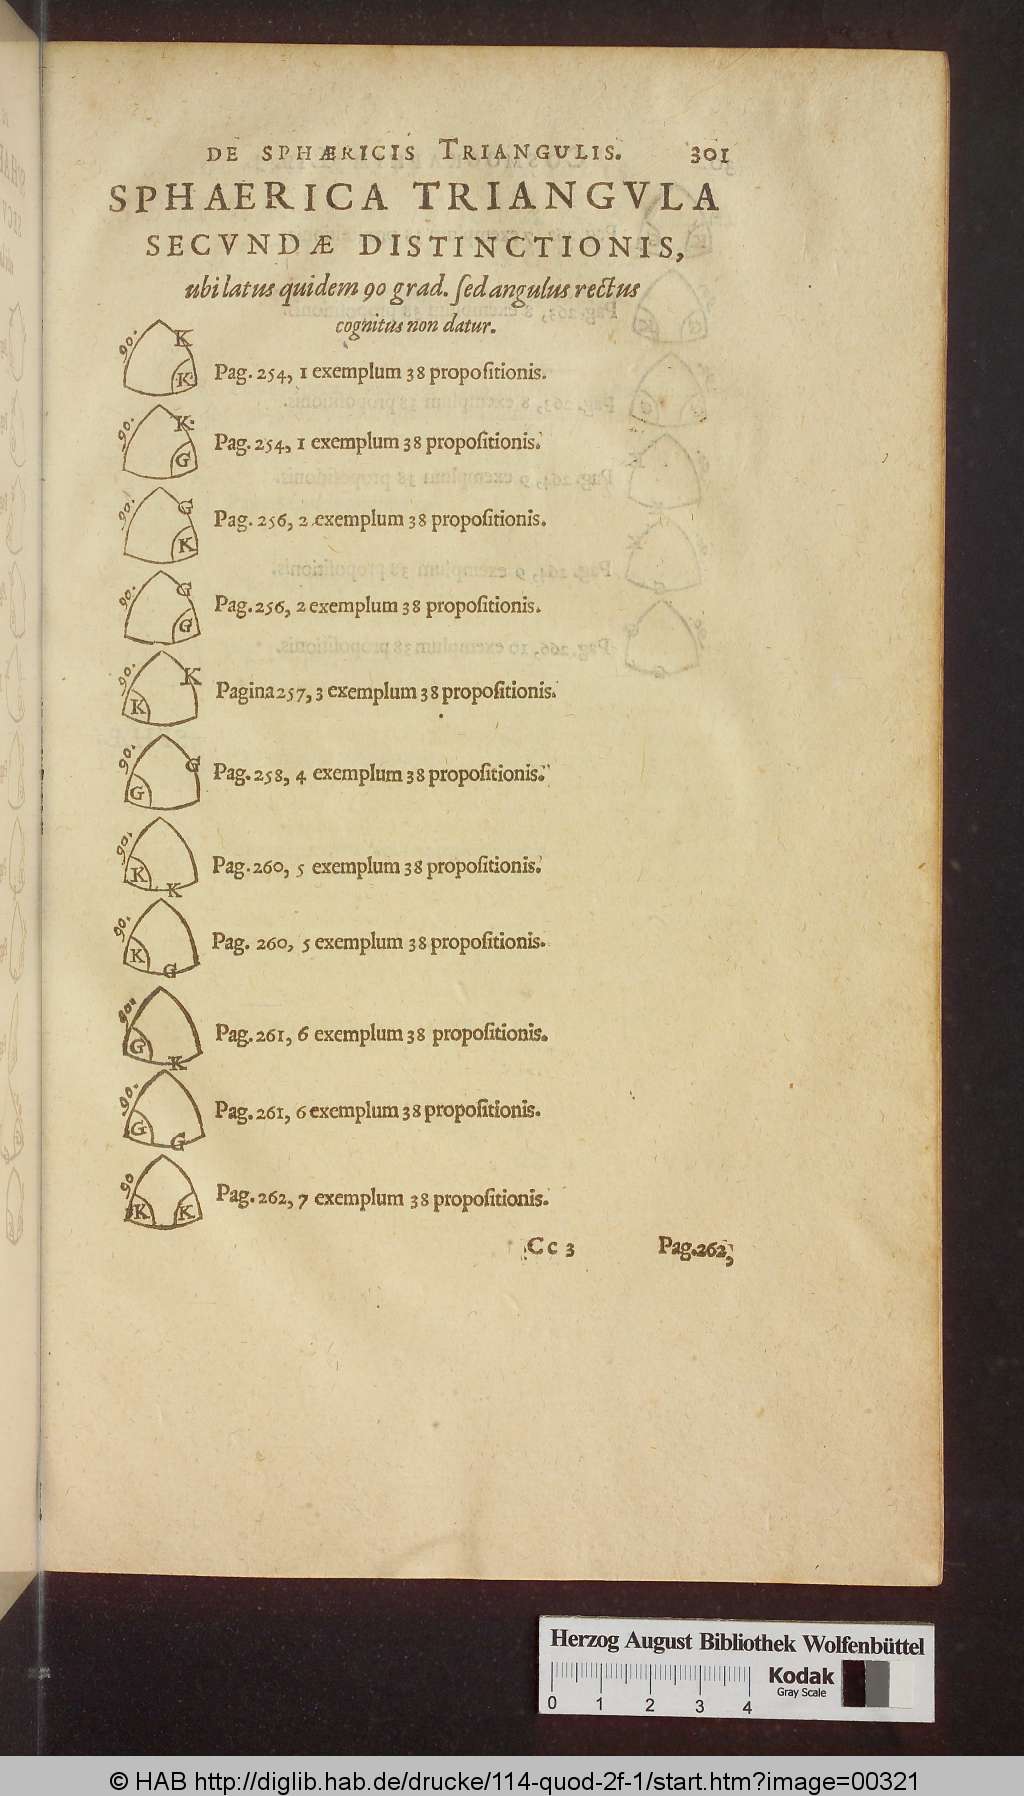 DE SPHÆRICIS TRIANGULIS. 301
SPHAERICA TRIANGVLA
SECVNDÆ DISTINCTIONIS,
ubi latus quidem 90 grad. ſed angulus rectus
cognitus non datur.
90. K K Pag. 254, 1 exemplum 38 propoſitionis.
90. K G Pag. 254, 1 exemplum 38 propoſitionis.
90. G K Pag. 256, 2 exemplum 38 propoſitionis.
90. G G Pag. 256, 2 exemplum 38 propoſitionis.
90. K K Pagina 257, 3 exemplum 38 propoſitionis.
90. G G Pag. 258, 4 exemplum 38 propoſitionis.
90. K K Pag. 260, 5 exemplum 38 propoſitionis.
90. K G Pag. 260, 5 exemplum 38 propoſitionis.
90. G K Pag. 261, 6 exemplum 38 propoſitionis.
90. G G Pag. 261, 6 exemplum 38 propoſitionis.
90 K K Pag. 262, 7 exemplum 38 propoſitionis.
Cc 3 Pag. 262,
Herzog August Bibliothek Wolfenbüttel
0 1 2 3 4
Kodak
Gray Scale
© HAB http://diglib.hab.de/drucke/114-quod-2f-1/start.htm?image=00321